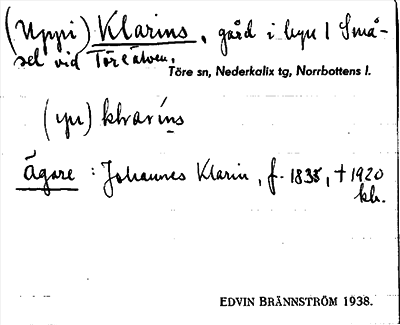 (Uppi) Klarins, gård i byn Små-
sel vid Töreälven.
Töre sn, Nederkalix tg, Norrbottens l.
(yp) klarins
ägare : Johannes Klarin, f. 1835, † 1920
EDVIN BRÄNNSTRÖM 1938.